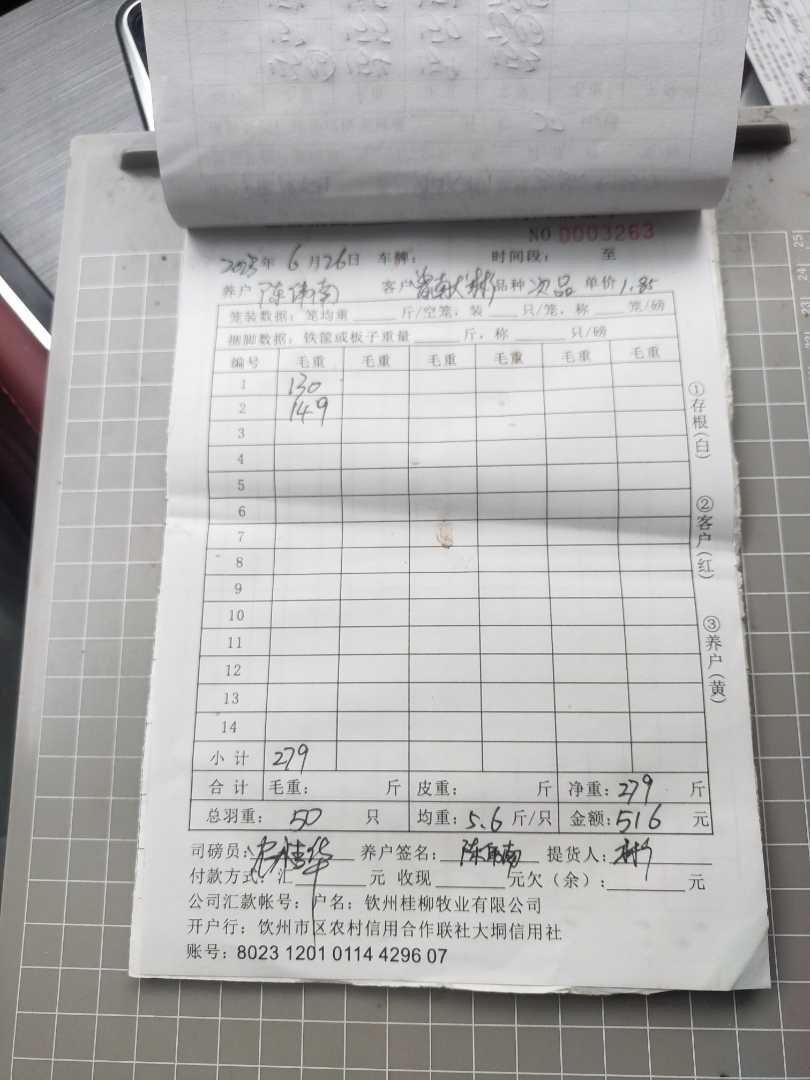 NO 0003263
2023年 6月26日 车牌： 时间段： 至
养户 陈伟南 客户 品种 次品 单价 1.85
笼装数据：笼均重 斤/空笼，装 只/笼，称 笼/磅
捆脚数据：铁筐或板子重量 斤，称 只/磅
编号 毛重 毛重 毛重 毛重 毛重 毛重
1 130
2 149
3
4
5
6
7
8
9
10
11
12
13
14
小计 279
合计 毛重： 斤 皮重： 斤 净重：279 斤
总羽重： 50 只 均重：5.6 斤/只 金额：516 元
司磅员： 养户签名：陈伟南 提货人：
付款方式：汇 元 收现 元欠（余）： 元
公司汇款帐号：户名：钦州桂柳牧业有限公司
开户行：钦州市区农村信用合作联社大垌信用社
账号：8023 1201 0114 4296 07
①存根（白） ②客户（红） ③养户（黄）